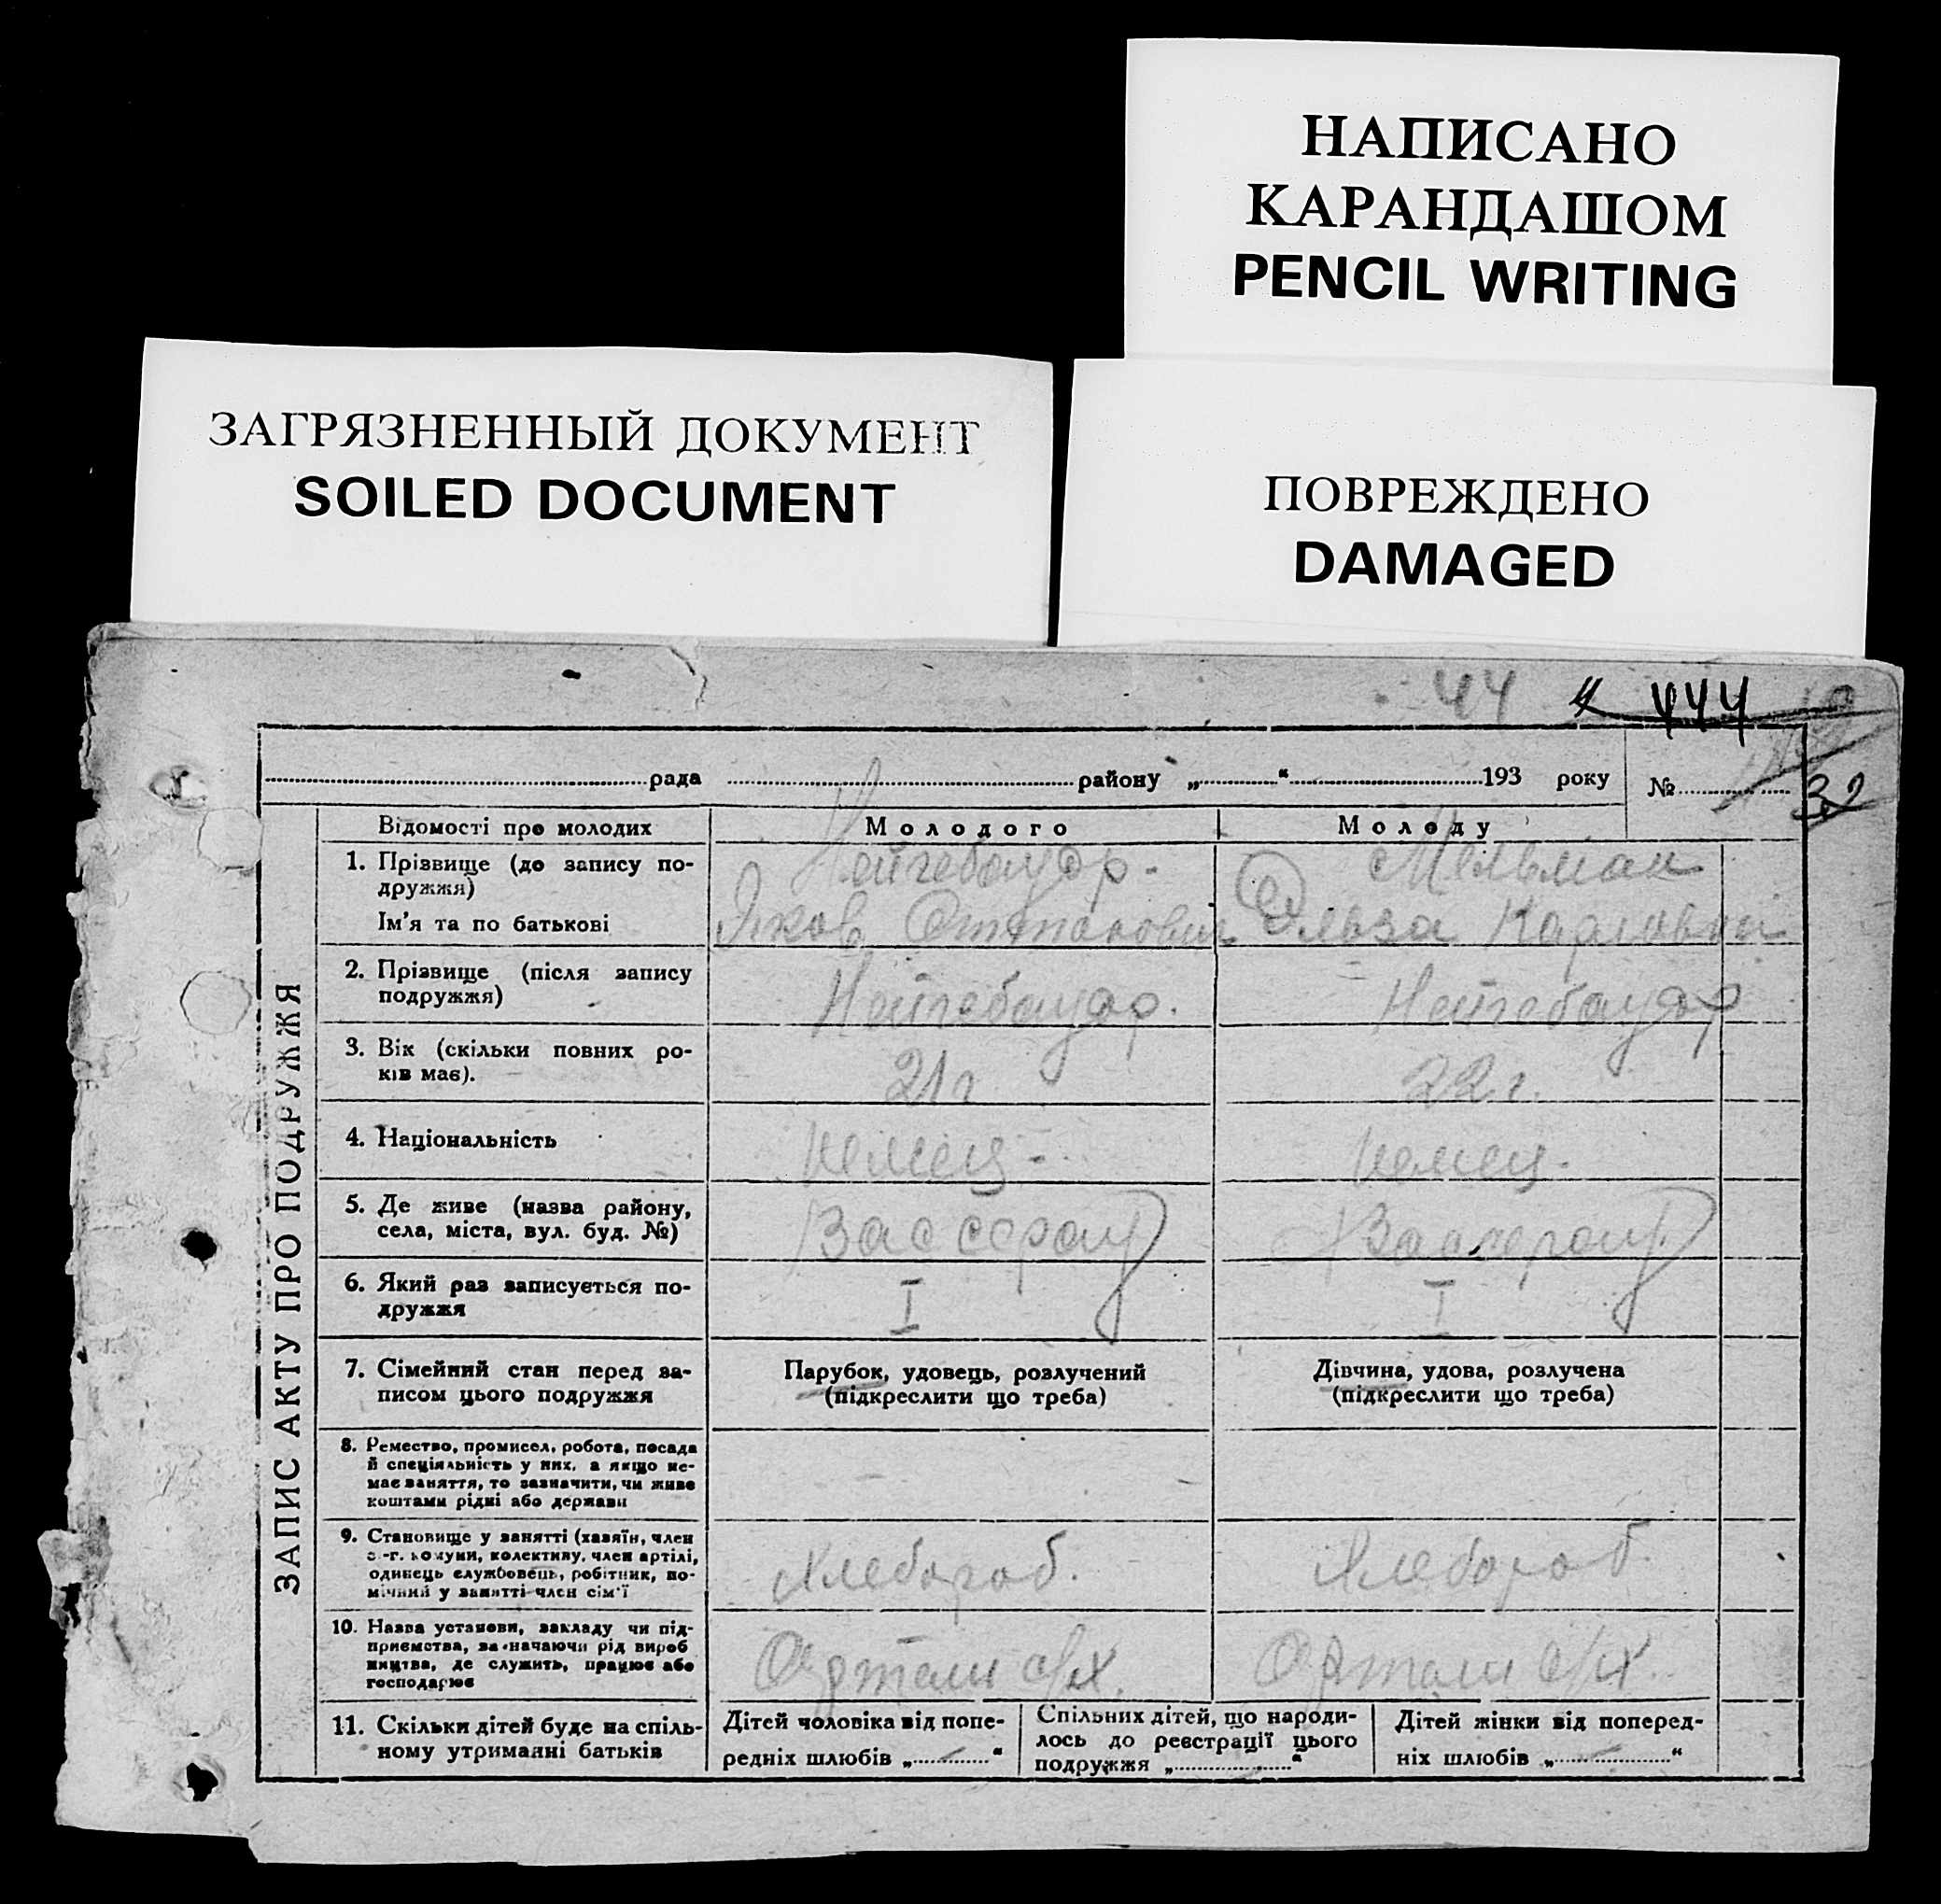 НАПИСАНО
КАРАНДАШОМ
PENCIL WRITING
ЗАГРЯЗНЕННЫЙ ДОКУМЕНТ
SOILED DOCUMENT
ПОВРЕЖДЕНО
DAMAGED
44 444
рада району „ “ 193 року №
32
ЗАПИС АКТУ ПРО ПОДРУЖЖЯ
Відомості про молодих Молодого Молоду
1. Прізвище (до запису по-
дружжя)
Нейгебауэр.
Ім'я та по батькові
Яков
Эльза Карловна
2. Прізвище (після запису
подружжя)
Нейгебауэр. Нейгебауэр
3. Вік (скільки повних ро-
ків має).
21 г 22 г.
4. Національність
немец - немец.
5. Де живе (назва району,
села, міста, вул. буд. №)
6. Який раз записується по-
дружжя
I I
7. Сімейний стан перед за-
писом цього подружжя
Парубок, удовець, розлучений
(підкреслити що треба)
Дівчина, удова, розлучена
(підкреслити що треба)
8. Ремество, промисел, робота, посада
й спеціяльність у них, а якщо не-
має заняття, то зазначити, чи живе
коштами рідні або держави
9. Становище у занятті (хазяїн, член
с.-г. комуни, колективу, член артілі,
одинець службовець, робітник, по-
мічний у занятті член сім'ї
Хлебороб. Хлебороб.
10. Назва установи, закладу чи під-
приємства, зазначаючи рід вироб
ництва, де служить, працює або
господарює
Артели с/х. Артели с/х.
11. Скільки дітей буде на спіль-
ному утриманні батьків
Дітей чоловіка від попе-
редніх шлюбів „ “
Спільних дітей, що народи-
лось до реєстрації цього
подружжя „ “
Дітей жінки від поперед-
ніх шлюбів „ “